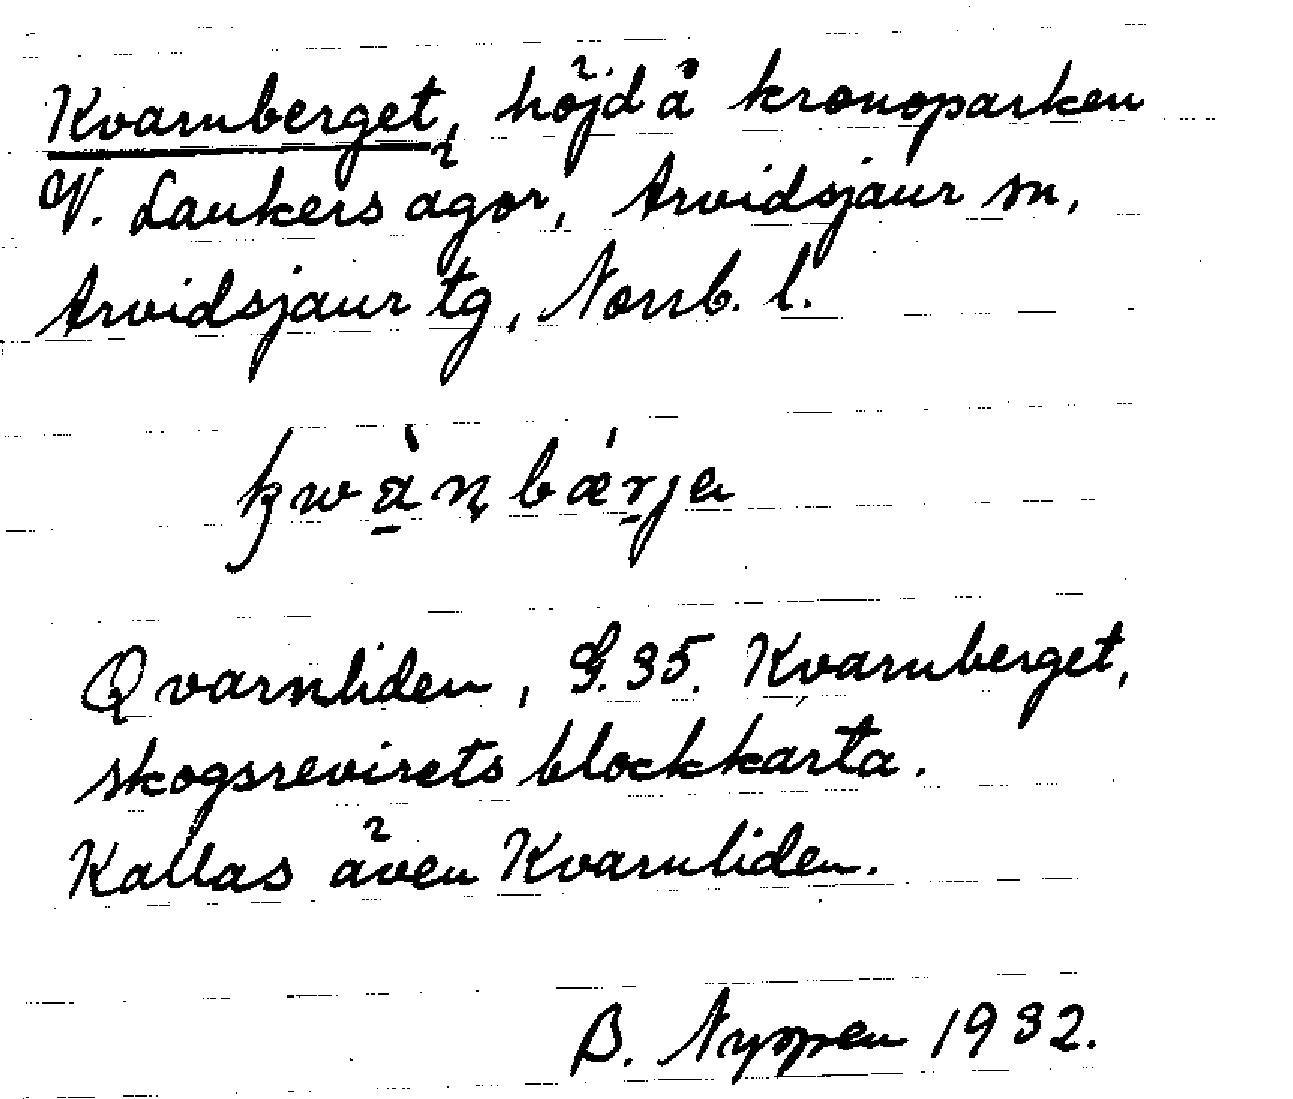 Kvarnberget, höjd å kronoparken
V. Laukers ägor, Arvidsjaur sn,
Arvidsjaur tg, Norrb. l.
kwà̠ɳbǽrja
Qvarnliden, G.35. Kvarnberget,
skogsrevirets blockkarta.
Kallas även Kvarnliden.
B. Nyppen 1932.